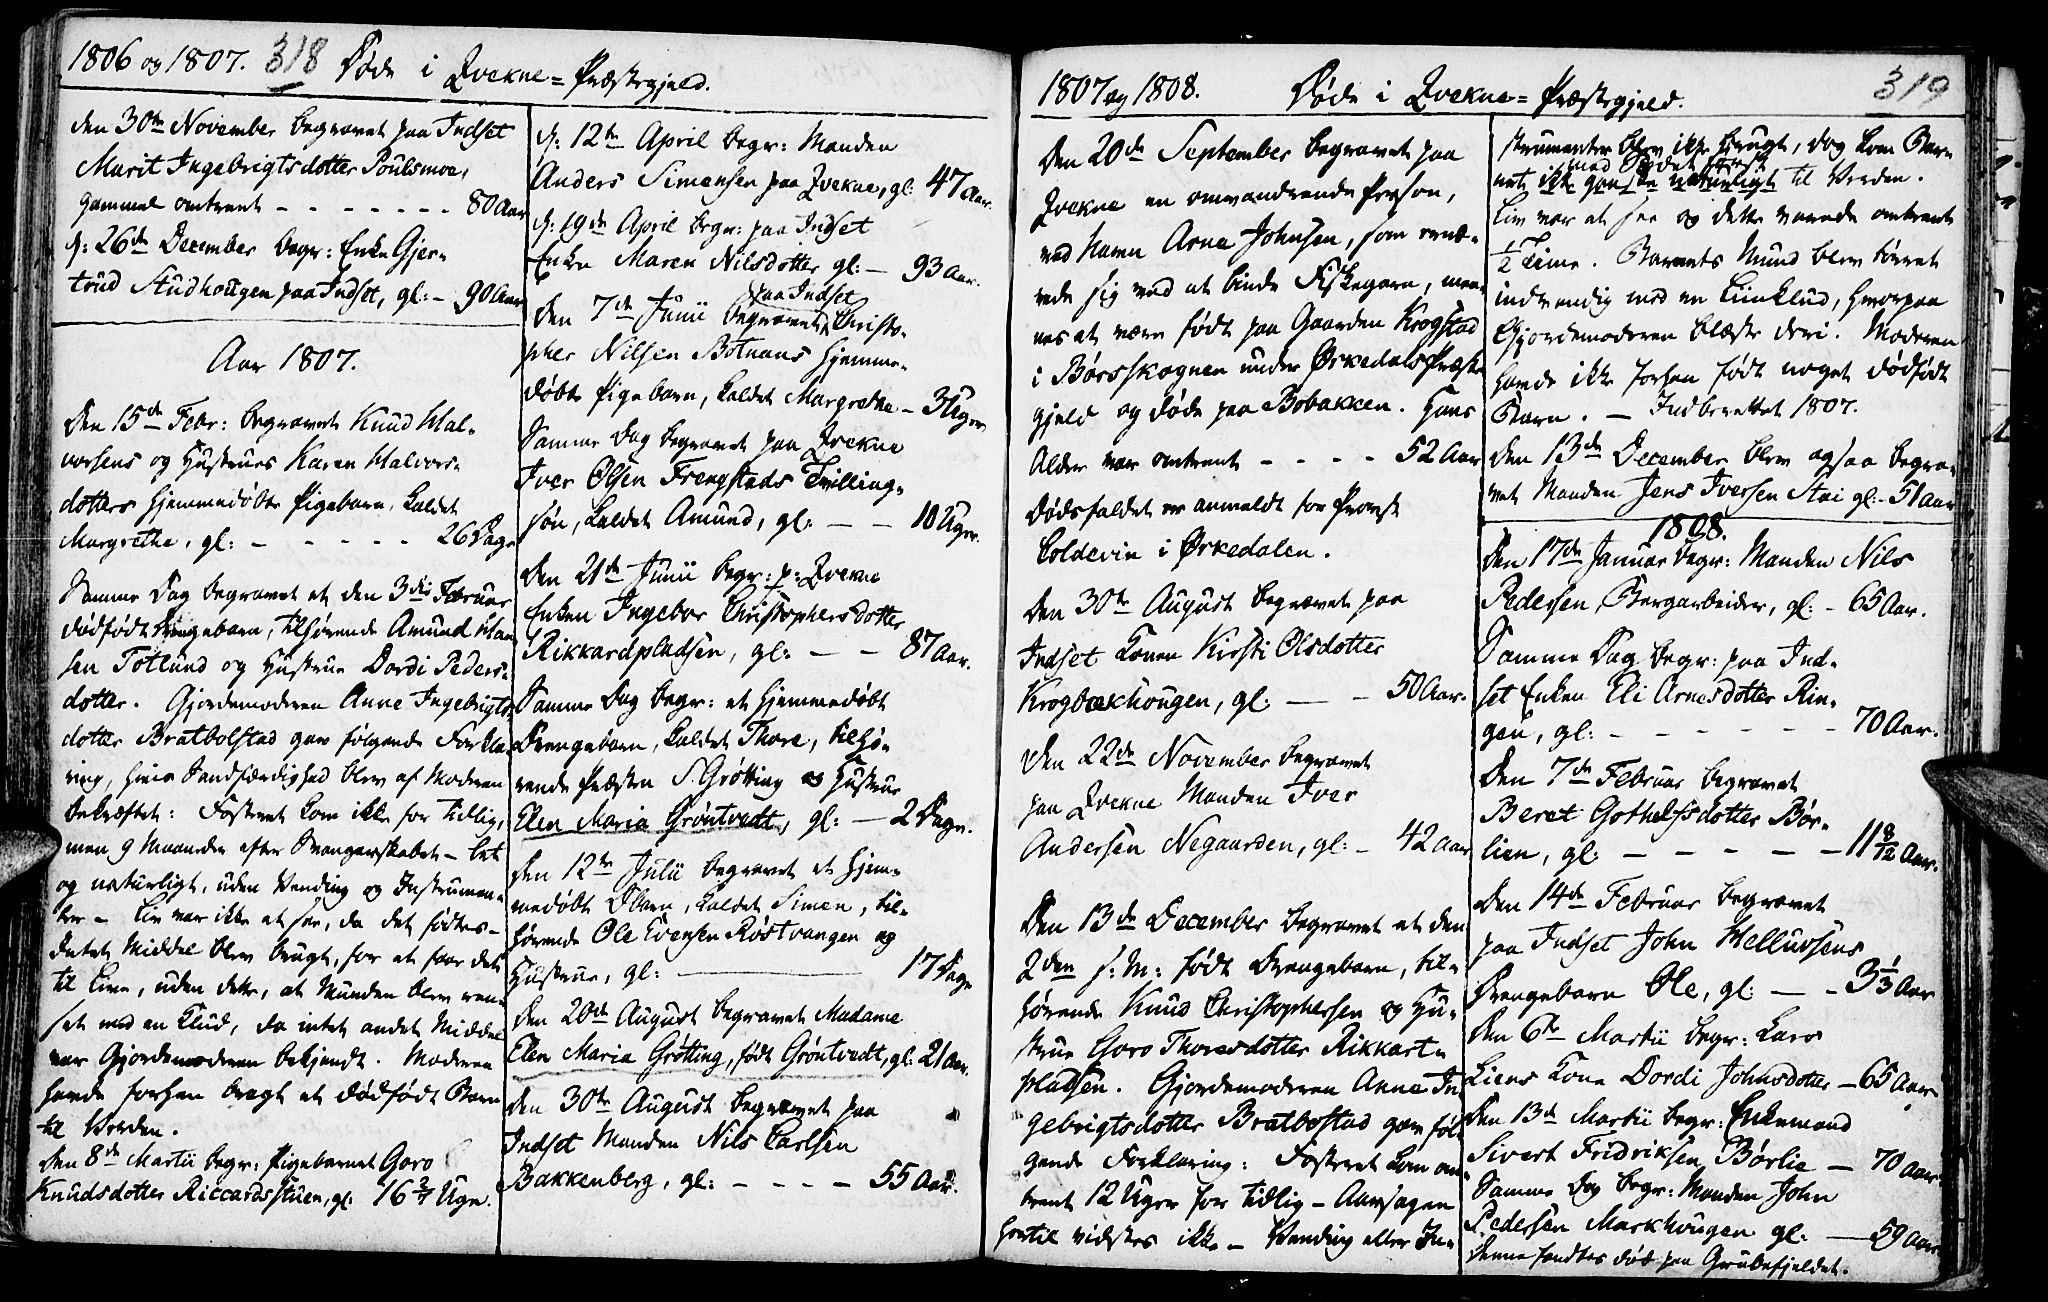 1806 og 1807. 318 Døde i Qvekne=Præstegjeld.
den 30te November begravet paa Indset
Marit Ingebrigtsdotter Poulsmoe,
gammel omtrent - - - - - - - 80 Aar
d: 26de December begr: Enke Gjer-
trud Studhougen paa Indset, gl: - 90 Aar
Aar 1807.
Den 15de Febr: begravet Knud Hal-
vorsens og Hustrues Karen Halvors-
dotters hjemmedøbte Pigebarn, kaldet
Margrethe, gl: - - - - - 26 Dage
Samme Dag begravet et den 3die Februar
dødfødt Drengebarn, tilhørende Amund Han
sen Totlund og Hustrue Dordi Peders-
dotter. Gjordemoderen Anne Ingebrigts-
dotter Bratbolstad gav følgende Forkla-
ring, hvis Sandfærdighed blev af Moderen
bekræftet: Fosteret kom ikke for tidlig,
men 9 Maaneder efter Svangerskabet - let
og naturligt, uden Vending og Instrumen-
ter - Liv var ikke at see, da det fødtes -
Intet Middel blev brugt, for at faae det
til Live, uden dette, at Munden blev ren-
set med en Klud, da intet andet Middel
var Gjordemoderen bekjendt. Moderen
havde forhen bragt et dødfødt Barn
til Verden.
Den 8de Martii begr: Pigebarnet Goro
Knudsdotter Riccardsstuen, gl: 16 3/7 Uge.
d: 12te April begr: Manden
Anders Simensen paa Qvekne, gl: 47 Aar.
d: 19de April begr: paa Indset
Enken Maren Nilsdotter gl: - 93 Aar.
paa Indset
Den 7de Junii begravet Christo-
pher Nilsen Botnans hjemme-
døbte Pigebarn, kaldet Margrethe - 3 Uger
Samme Dag begravet paa Qvekne
Iver Olsen Frengstads Tvilling-
søn, kaldet Amund, gl: - - 10 Uger.
Den 21de Junii begr: p: Qvekne
Enken Ingebor Christophersdotter
Rikkardpladsen, gl: - - 87 Aar.
Samme Dag begr: et hjemmedøbt
Drengebarn, kaldet Thore, tilhø-
rende Præsten S. Grøtting og Hustrue
Elen Maria Grøntvedt, gl: - 2 Dage.
Den 12te Julii begravet et hjem-
medøbt Dbarn, kaldet Simen, til-
hørende Ole Evensen Røstvangen og
Hustrue, gl: - 17 Dage
Den 20de August begravet Madame
Elen Maria Grøtting, født Grøntvedt, gl: 21 Aar.
Den 30te August begravet paa
Indset Manden Nils Carlsen
Bakkenberg, gl: - - - - 55 Aar.
1807 og 1808. Døde i Qvekne=Præstegjeld. 319
Den 20de September begravet paa
Qvekne en omvandrende Person,
ved Navn Arne Johnsen, som ernæ-
rede sig ved at binde Fiskegarn, mee-
nes at være født paa Gaarden Krogstad
i Børsskognen under Ørkedals Præste
gjeld og døde paa Bobakken. Hans
Alder var omtrent - - - - 52 Aar
Dødsfaldet er anmeldt for Provst
Coldevin i Ørkedalen.
Den 30te August begravet paa
Indset Konen Kirsti Olsdotter
Krogbækhougen, gl: - - 50 Aar.
Den 22de November begravet
paa Qvekne Manden Iver
Andersen Negaarden, gl: - 42 Aar
Den 13de December begravet et den
2den s: M: født Drengebarn, til-
hørende Knud Christophersen og Hu-
strue Goro Thoresdotter Rikkart-
pladsen. Gjordemoderen Anne In
gebrigtsdotter Bratbostad gav føl
gende Forklaring: Fosteret kom om-
trent 12 Uger for tidlig - Aarsagen
hertil vidstes ikke - Vending eller In-
strumenter blev ikke brugt, dog kom Bar-
med Sædet først
net ikke gandske naturligt til Verden.
Liv var at see og dette varede omtrent
1/2 Time. Barnets Mund blev tørret
indvendig med en Liinklud, hvorpaa
Gjordemoderen blæste deri. Moderen
havde ikke forhen født noget dødfødt
Barn. - Indberettet 1807.
Den 13de December blev ogsaa begra-
vet Manden Jens Iversen Stai gl: - 51 Aar
1808.
Den 17de Januar begr: Manden Nils
Pedersen, Bergarbeider, gl: - 65 Aar.
Samme Dag begr: paa Ind-
set Enken Eli Arnesdotter Rin-
gen, gl: - - - - - - 70 Aar.
Den 7de Februar begravet
Beret Gothelfsdotter Bør-
lien, gl: - - - - - 11 8/12 Aar.
Den 14de Februar begravet
paa Indset John Mellussens
Drengebarn Ole, gl: - - 3 1/3 Aar
Den 6te Martii begr: Lars
Liens Kone Dordi Johnsdotter - 65 Aar
Den 13de Martii begr: Enkemand
Sivert Fridriksen Børlie - 70 Aar.
Samme Dag begr: Manden John
Pedersen Markhougen gl: - 59 Aar.
denne fandtes død paa Grubefjeldet.